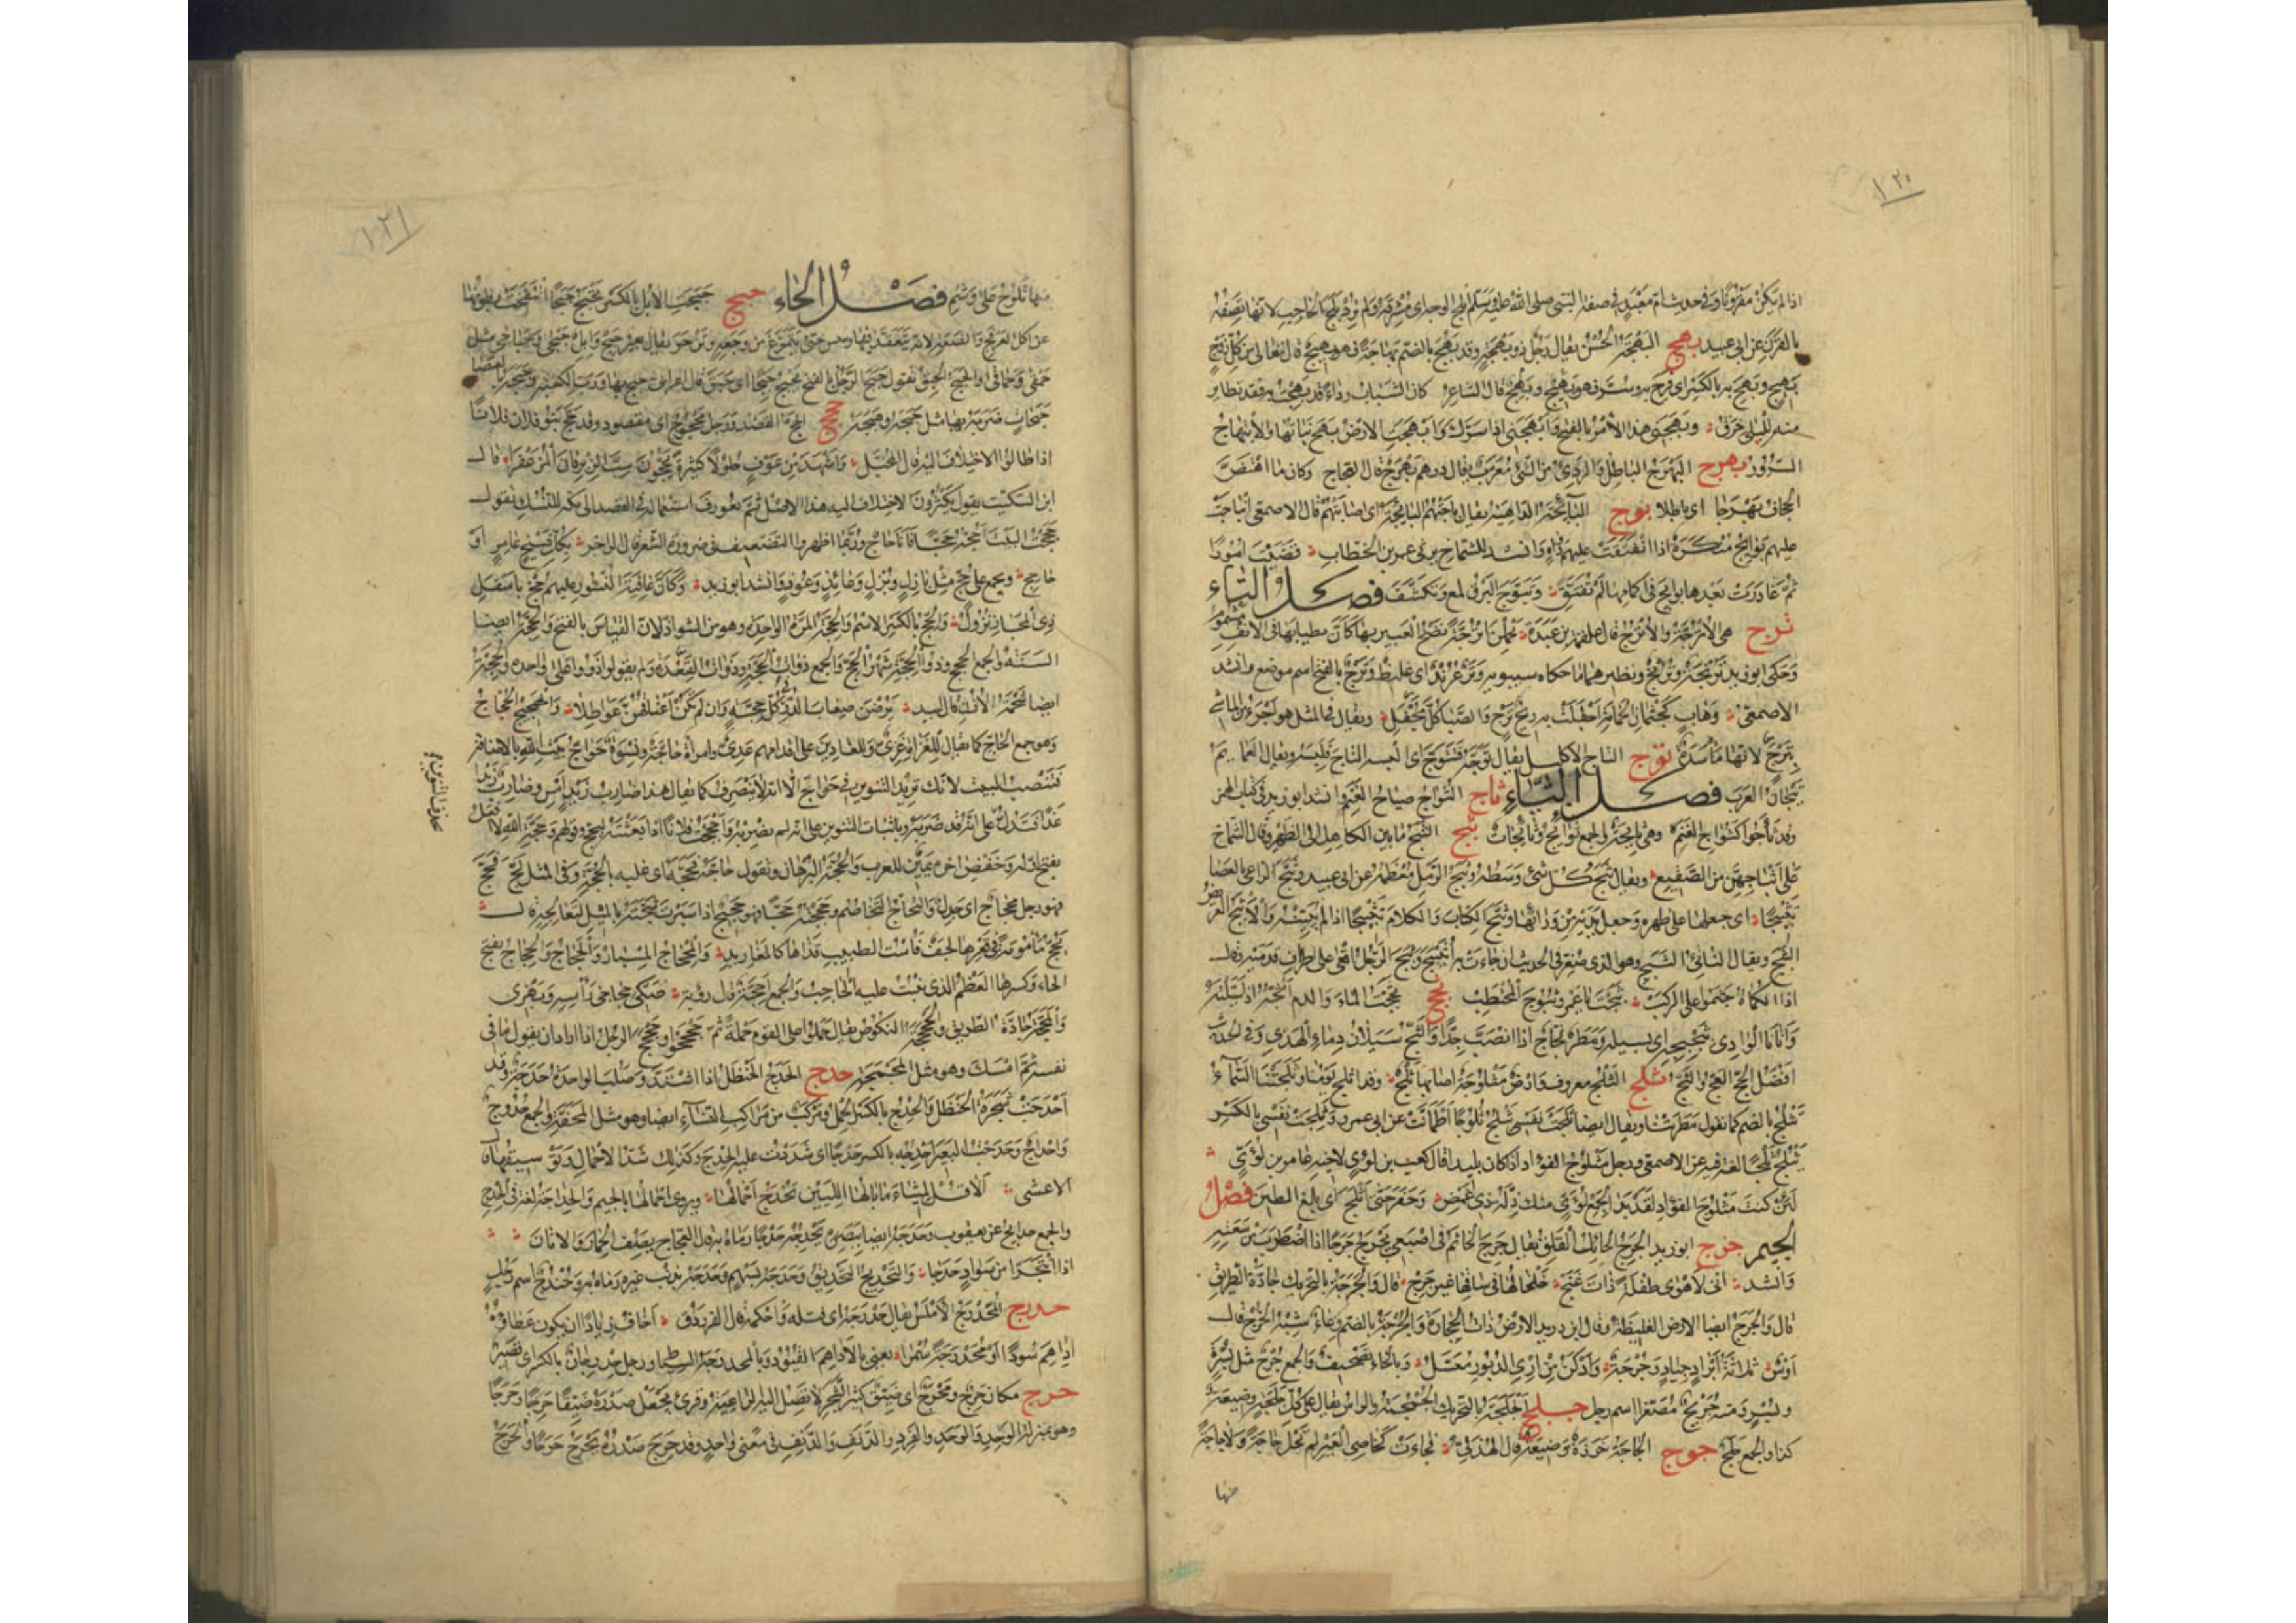 ١٢٠
اذا لم يكن مقرونا وفى حديث ام معبد فى صفة النبى صلى الله عليه وسلم ابلج الوجه اى مشرقه ولم ترد بلج الحاجب لانها تصفه
بالقرن عن ابى عبيد بهج البهجة الحسن يقال رجل ذو بهجة وقد بهج بالضم بهاجة فهو بهيج قال تعالى من كل زوج
بهيج وبهج به بالكسر اى فرح به وسر فهو بهج وبهيج قال الشاعر كان الشباب رداء قد بهجت به فقد تطاير
منه للبلى خرق وبهجنى هذا الامر بالفتح وابهجنى اذا سرك وابهجت الارض بهج نباتها والابتهاج
السرور بهرج البهرج الباطل والردى من الشئ معرب يقال درهم بهرج قال العجاج وكان ما اهتض
الجحاف بهرجا اى باطلا بوج البائجة الداهية يقال باجتهم البائجة اى اصابتهم قال الاصمعى انباجت
عليهم بوائج منكرة اذا انفتقت عليهم دواه وانشد للشماخ يرثى عمر بن الخطاب قضيت امورا
ثم غادرت بعدها بوائج فى اكمامها لم تفتق وتبوج البرق لمع وتكشف فصل التاء
ترج هى الاترجة والاترج قال علقمة بن عبدة يحملن اترجة نضخ العبير بها كان تطيابها فى الانف مشموم
وحكى ابو زيد ترنجة وترنج ونظيرهما ما حكاه سيبويه وتر عرند اى غليظ وترج بالفتح اسم موضع وانشد
الاصمعى وهاب كجثمان الحمامة اجفلت به ريح ترج والصبا كل مجفل ويقال فى المثل هو اجرء من الماشى
بترج لانها مأسدة توج التاج الاكليل يقال توجه فتتوج اى البسه التاج فلبسه ويقال العمايم
تيجان العرب فصل الثاء ثاج الثواج صياح الغنم وانشد ابو زيد فى كتاب الهمز
وقد ثأجوا كثواج الغنم وهى ثائجة والجمع ثوائج وثائجات ثبج الثبج ما بين الكاهل الى الظهر وقال الشماخ
على اثباجهن من الصقيع ويقال ثبج كل شئ وسطه وثبج الرمل معظمه عن ابى عبيد وثبج الراعى بالعصا
تثبيجا اى جعلها على ظهره وجعل يديه من ورائها وثبج الكتاب والكلام تثبيجا اذا لم يبينه والاثبج العريض
الثبج ويقال الناتئ الثبج وهو الذى صغر فى الحديث ان جاءت به اثيبج وثبج الرجل اقعى على اطراف قدميه قال
اذا الكماة جثموا على الركب ثبجت يا عمرو ثبوج المحتطب ثجج ثججت الماء والدم اثجه اذا سيلته
واتانا الوادى بثجيجه اى بسيله ومطر ثجاج اذا انصب جدا والثج سيلان دماء الهدى وفى الحديث
افضل الحج العج والثج ثلج الثلج معروف وارض مثلوجة اصابها ثلج وقد اثلج يومنا وثلجتنا السماء
تثلج بالضم كما تقول مطرتنا ويقال ايضا ثلجت نفسى تثلج ثلوجا اطمأنت عن ابى عمرو وثلجت نفسى بالكسر
تثلج ثلجا لغة فيه عن الاصمعى ورجل مثلوج الفؤاد اذا كان بليدا قال كعب بن لؤى لاخيه عامر بن لؤى
لئن كنت مثلوج الفؤاد لقد بدا لجمع لؤى منك ذلة ذى غمض وحفر حتى اثلج اى بلغ الطين فصل
الجيم جرج ابو زيد الجرج الجائل القلق يقال جرج الخاتم فى اصبعى يجرج جرجا اذا اضطرب من سعته
وانشد انى لاهوى طفلة ذات غنج خلخالها فى ساقها غير جرج قال والجرجة بالتحريك جادة الطريق
قال والجرج ايضا الارض الغليظة وقال ابن دريد الارض ذات الحجارة والجرجة بالضم وعاء شبه الخرج قال
اوس ثلاثة ابراد جياد وجرجة وادكن من ارى الدبور معسل وبالخاء تصحيف والجمع جرج مثل بسرة
وبسر ومنه جريج مصغرا اسم رجل جلج الجلجة بالتحريك الجمجمة والراس يقال على كل جلجة وضيعة
كذا والجمع جلج جوج الجاجة خرزة وضيعة قال الهذلى فجاءت كخاصى العير لم تحل جاجة ولا عاجة
منها
١٢١
منها تلوح على وشم فصل الحاء حبج حبجت الابل بالكسر تحبج حبجا انتفخت بطونها
عن اكل العرفج والضعة لانه يتعقد فيها وييبس حتى يتمرغ من وجعه ويزحر يقال بعير حبج وابل حبجى وحباجى مثل
حمقى وحماقى والحبج الحبق تقول حبج الرجل بالفتح يحبج حبجا اى حبق قال اعرابى حبج بها ورب الكعبة وحبجه بالعصا
حبجات ضربه بها مثل خبجه وهبجه حجج الحج القصد ورجل محجوج اى مقصود وقد حج بنو فلان فلانا
اذا طالوا الاختلاف اليه قال المخبل واشهد من عوف حلولا كثيرة يحجون سب الزبرقان المزعفرا قال
ابن السكيت يقول يكثرون الاختلاف اليه هذا الاصل ثم تعورف استعماله فى القصد الى مكة للنسك وتقول
حججت البيت احجه حجا فانا حاج وربما اظهروا التضعيف فى ضرورة الشعر قال الراجز بكل شيخ عامر او
حاجج ويجمع على حج مثل بازل وبزل وعائذ وعوذ وانشد ابو زيد وكان عافية النسور عليهم حج باسفل
ذى المجاز نزول والحج بالكسر الاسم والحجة المرة الواحدة وهو من الشواذ لان القياس بالفتح والحجة ايضا
السنة والجمع الحجج وذو الحجة شهر الحج والجمع ذوات الحجة وذوات القعدة ولم يقولوا ذوو على واحده والحجة
ايضا شحمة الاذن قال لبيد يرضن صعاب الدر فى كل حجة وان لم تكن اعناقهن عواطلا والحجيج الحجاج
وهو جمع الحاج كما يقال للغزاة غزى وللعادين على اقدامهم عدى وامرأة حاجة ونسوة حواج بيت الله بالاضافة
فتنصب البيت لانك تريد التنوين فى حواج الا انه لا ينصرف كما يقال هذا ضارب زيد امس وضارب زيدا
غدا فتدل على انه قد ضربه وباثبات التنوين على انه لم يضربه واحججت فلانا اذا بعثته ليحج وقولهم وحجة الله لا افعل
بفتح اوله وخفض اخره يمين للعرب والحجة البرهان وتقول حاجه فحجه اى غلبه بالحجة وفى المثل لج فحج
فهو رجل محجاج اى جدل والتحاج التخاصم وحججته حجا فهو حجيج اذا سبرت شجته بالميل لتعالجه قال
يحج مأمومة فى قعرها لجف فاست الطبيب قذاها كالمغاريد والمحجاج المسبار والحجاج والحجاج بفتح
الحاء وكسرها العظم الذى ينبت عليه الحاجب والجمع احجة قال رؤبة صكى حجاجى رأسه وبهزى
والمحجة جادة الطريق والحجحجة النكوص يقال حملوا على القوم حملة ثم حجحجوا وحجحج الرجل اذا اراد ان يقول ما فى
نفسه ثم امسك وهو مثل المجمجة حدج الحدج الحنظل اذا اشتد وصلب الواحدة حدجة وقد
احدجت شجرة الحنظل والحدج بالكسر الحمل ومركب من مراكب النساء ايضا وهو مثل المحفة والجمع حدوج
واحداج وحدجت البعير احدجه بالكسر حدجا اى شددت عليه الحدج وكذلك شد الاحمال وتوسيقها قال
الاعشى الا قل لميثاء ما بالها اللبين تحدج احمالها ويروى اجمالها بالجيم والحداجة لغة فى الحدج
والجمع حدائج عن يعقوب وحدجه ايضا ببصره يحدجه حدجا رماه به قال العجاج يصف الحمار والاتان
اذا اثبجرا من سواد حدجا والتحديج التحديق وحدجه بسهم وحدجه بذنب غيره رماه به وحندج اسم رجل
حدرج المحدرج الاملس يقال حدرجه اى فتله واحكمه قال الفرزدق اخاف زيادا ان يكون عطاؤه
اداهم سودا او محدرجة سمرا يعنى بالاداهم القيود وبالمحدرجة السياط ورجل حدرجان بالكسر اى قصير
حرج مكان حرج وحرج اى ضيق كثير الشجر لا تصل اليه الراعية وقرئ يجعل صدره ضيقا حرجا وحرجا
وهو بمنزلة الوحد والوحد والفرد والفرد والدنف والدنف فى معنى واحد وقد حرج صدره يحرج حرجا والحرج